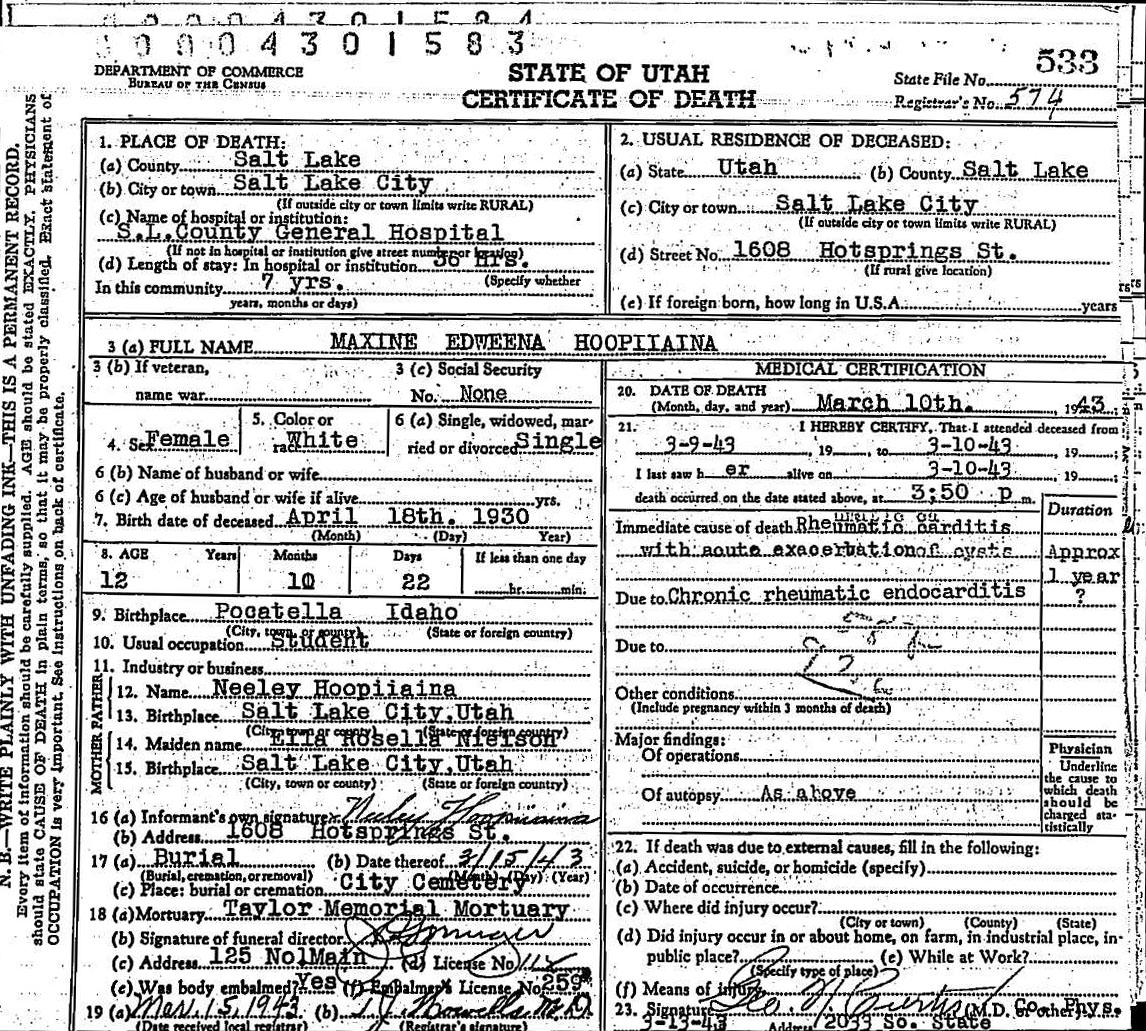 00004301583
DEPARTMENT OF COMMERCE
BUREAU OF THE CENSUS
STATE OF UTAH
CERTIFICATE OF DEATH
533
State File No.
Registrar's No. 574
N. B.—WRITE PLAINLY WITH UNFADING INK—THIS IS A PERMANENT RECORD.
Every item of information should be carefully supplied. AGE should be stated EXACTLY. PHYSICIANS
should state CAUSE OF DEATH in plain terms, so that it may be properly classified. Exact statement of
OCCUPATION is very important. See instructions on back of certificate.
1. PLACE OF DEATH:
(a) County Salt Lake
(b) City or town Salt Lake City
(If outside city or town limits write RURAL)
(c) Name of hospital or institution:
S.L.County General Hospital
(If not in hospital or institution give street number or location)
(d) Length of stay: In hospital or institution 36 Hrs.
(Specify whether
In this community 7 yrs.
years, months or days)
2. USUAL RESIDENCE OF DECEASED:
(a) State Utah (b) County Salt Lake
(c) City or town Salt Lake City
(If outside city or town limits write RURAL)
(d) Street No. 1608 Hotsprings St.
(If rural give location)
(e) If foreign born, how long in U.S.A. years
3 (a) FULL NAME MAXINE EDWEENA HOOPIIAINA
3 (b) If veteran,
name war
3 (c) Social Security
No. None
4. Sex Female
5. Color or
race White
6 (a) Single, widowed, mar-
ried or divorced Single
6 (b) Name of husband or wife
6 (c) Age of husband or wife if alive yrs.
7. Birth date of deceased April 18th. 1930
(Month) (Day) Year)
8. AGE Years Months Days If less than one day
12 10 22 hr. min.
9. Birthplace Pocatella Idaho
(City, town, or county) (State or foreign country)
10. Usual occupation Student
11. Industry or business
FATHER
12. Name Neeley Hoopiiaina
13. Birthplace Salt Lake City,Utah
(City, town or county) (State or foreign country)
MOTHER
14. Maiden name Ella Rosella Nielson
15. Birthplace Salt Lake City,Utah
(City, town or county) (State or foreign country)
16 (a) Informant's own signature Neeley Hoopiiaina
(b) Address 1608 Hotsprings St.
17 (a) Burial (b) Date thereof 3/15/43
(Burial, cremation, or removal) (Month) (Day) (Year)
(c) Place: burial or cremation City Cemetery
18 (a) Mortuary Taylor Memorial Mortuary
(b) Signature of funeral director
(c) Address 125 No1Main (d) License No 112
(e) Was body embalmed? Yes (f) Embalmer's License No. 259
19 (a) Mar. 15, 1943 (b)
(Date received local registrar) (Registrar's signature)
MEDICAL CERTIFICATION
20. DATE OF DEATH
(Month, day, and year) March 10th. , 1943
21. I HEREBY CERTIFY, That I attended deceased from
3-9-43 , 19 , to 3-10-43 , 19 ;
I last saw h er alive on 3-10-43 , 19
death occurred on the date stated above, at 3:50 p m.
Duration
Immediate cause of death Rheumatic carditis
with acute exacerbation of cysts Approx
1 year
Due to Chronic rheumatic endocarditis ?
Due to
Other conditions
(Include pregnancy within 3 months of death)
Major findings:
Of operations
Of autopsy As above
Physician
Underline
the cause to
which death
should be
charged sta-
tistically
22. If death was due to external causes, fill in the following:
(a) Accident, suicide, or homicide (specify)
(b) Date of occurrence
(c) Where did injury occur?
(City or town) (County) (State)
(d) Did injury occur in or about home, on farm, in industrial place, in
public place? (e) While at Work?
(Specify type of place)
(f) Means of injury
23. Signature Co. Phys.
(M.D. or other)
3-13-43 Address 2033 So. State